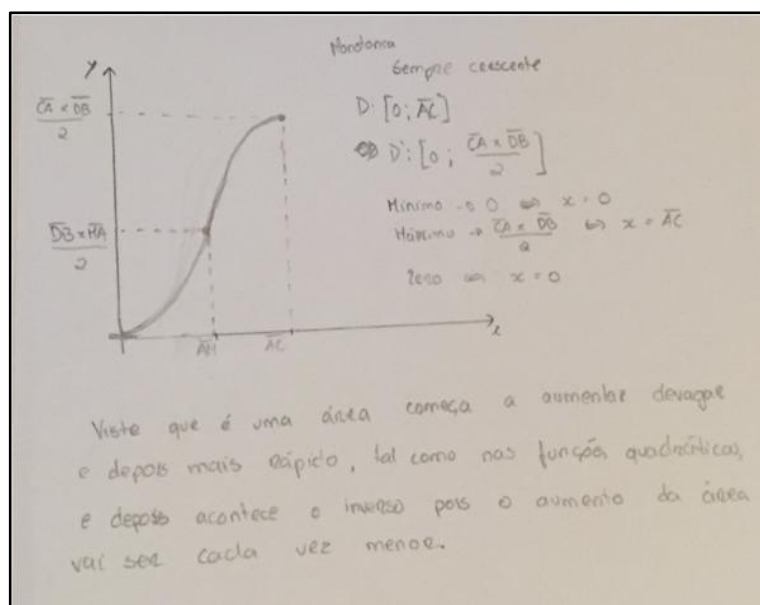 Monotonia
Sempre crescente
y
CA × DB
2
DB × MA
2
AM
AC
x
D: [0; AC]
⇔ D': [0; CA × DB / 2]
Mínimo → 0 ⇔ x = 0
Máximo → CA × DB / 2 ⇔ x = AC
Zero ⇔ x = 0
Visto que é uma área começa a aumentar devagar
e depois mais rápido, tal como nas função quadráticas,
e depois acontece o inverso pois o aumento da área
vai ser cada vez menor.